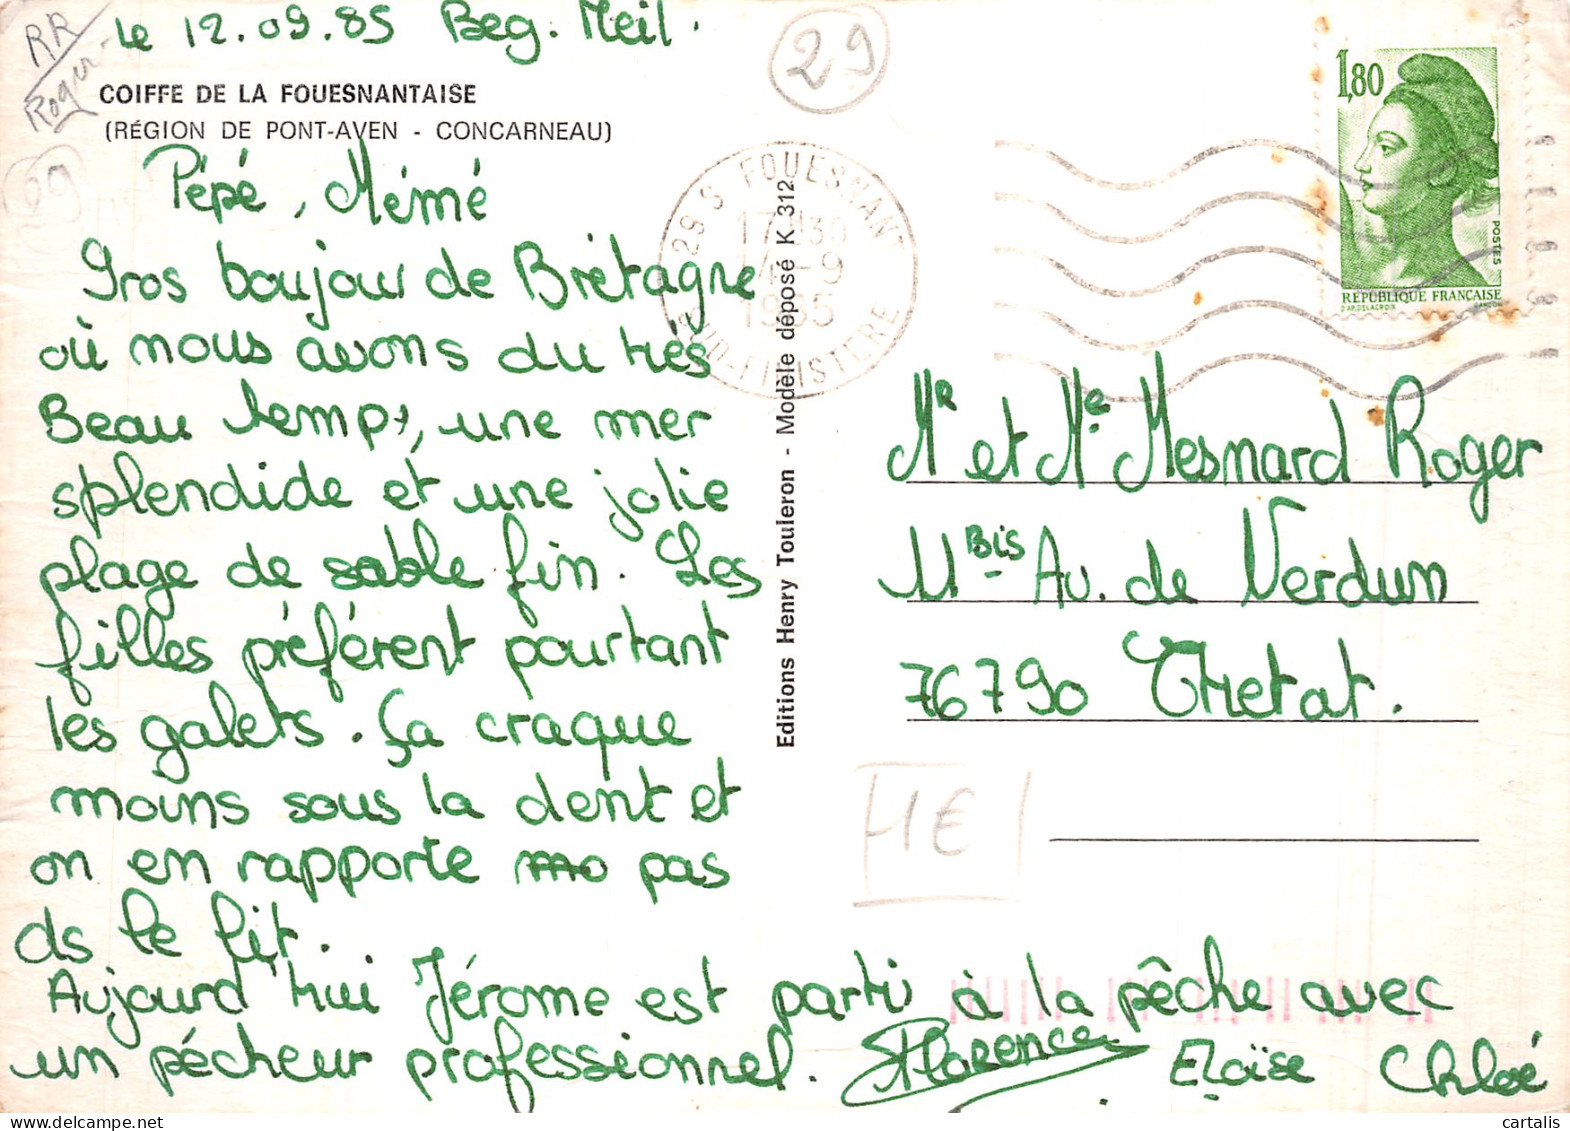 RR
Roger
Le 12.09.85 Beg. Meil.
29
COIFFE DE LA FOUESNANTAISE
(RÉGION DE PONT-AVEN - CONCARNEAU)
Pépé, Mémé
Gros boujour de Bretagne
où nous avons du très
Beau temps, une mer
splendide et une jolie
plage de sable fin. Les
filles préférent pourtant
les galets. Ça craque
moins sous la dent et
on en rapporte pas
ds le lit.
Aujourd'hui Jérome est parti à la pêche avec
un pécheur professionnel. Florence Eloïse Chloé
Editions Henry Touleron - Modèle déposé K 312
29 S FOUESNANT
17H30
14-9
1985
SUD-FINISTERE
1,80
POSTES
RÉPUBLIQUE FRANÇAISE
D'AP. DELACROIX GANDON
Mr et Me Mesnard Roger
11 Bis Av. de Verdun
76790 Etretat.
1€
cartalis